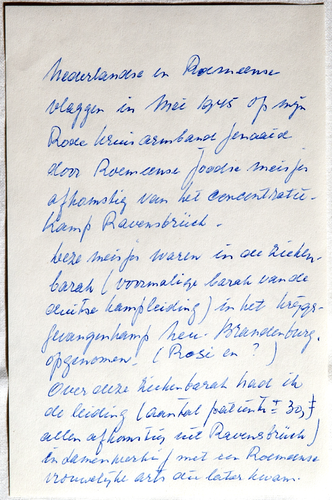 Nederlandse en Roemeense
vlaggen in Mei 1945 op mijn
Rode Kruis armband genaaid
door Roemeense joodse meisjes
afkomstig van het concentratie-
kamp Ravensbrück.
Deze meisjes waren in de zieken-
barak (voormalige barak van de
duitse kampleiding) in het krijgs-
gevangenkamp Neu-Brandenburg,
opgenomen. (Rosi en ?)
Over deze ziekenbarak had ik
de leiding (aantal patiënten ± 30,
allen afkomstig uit Ravensbrück)
en samen met een Roemeense
vrouwelijke arts die later kwam.